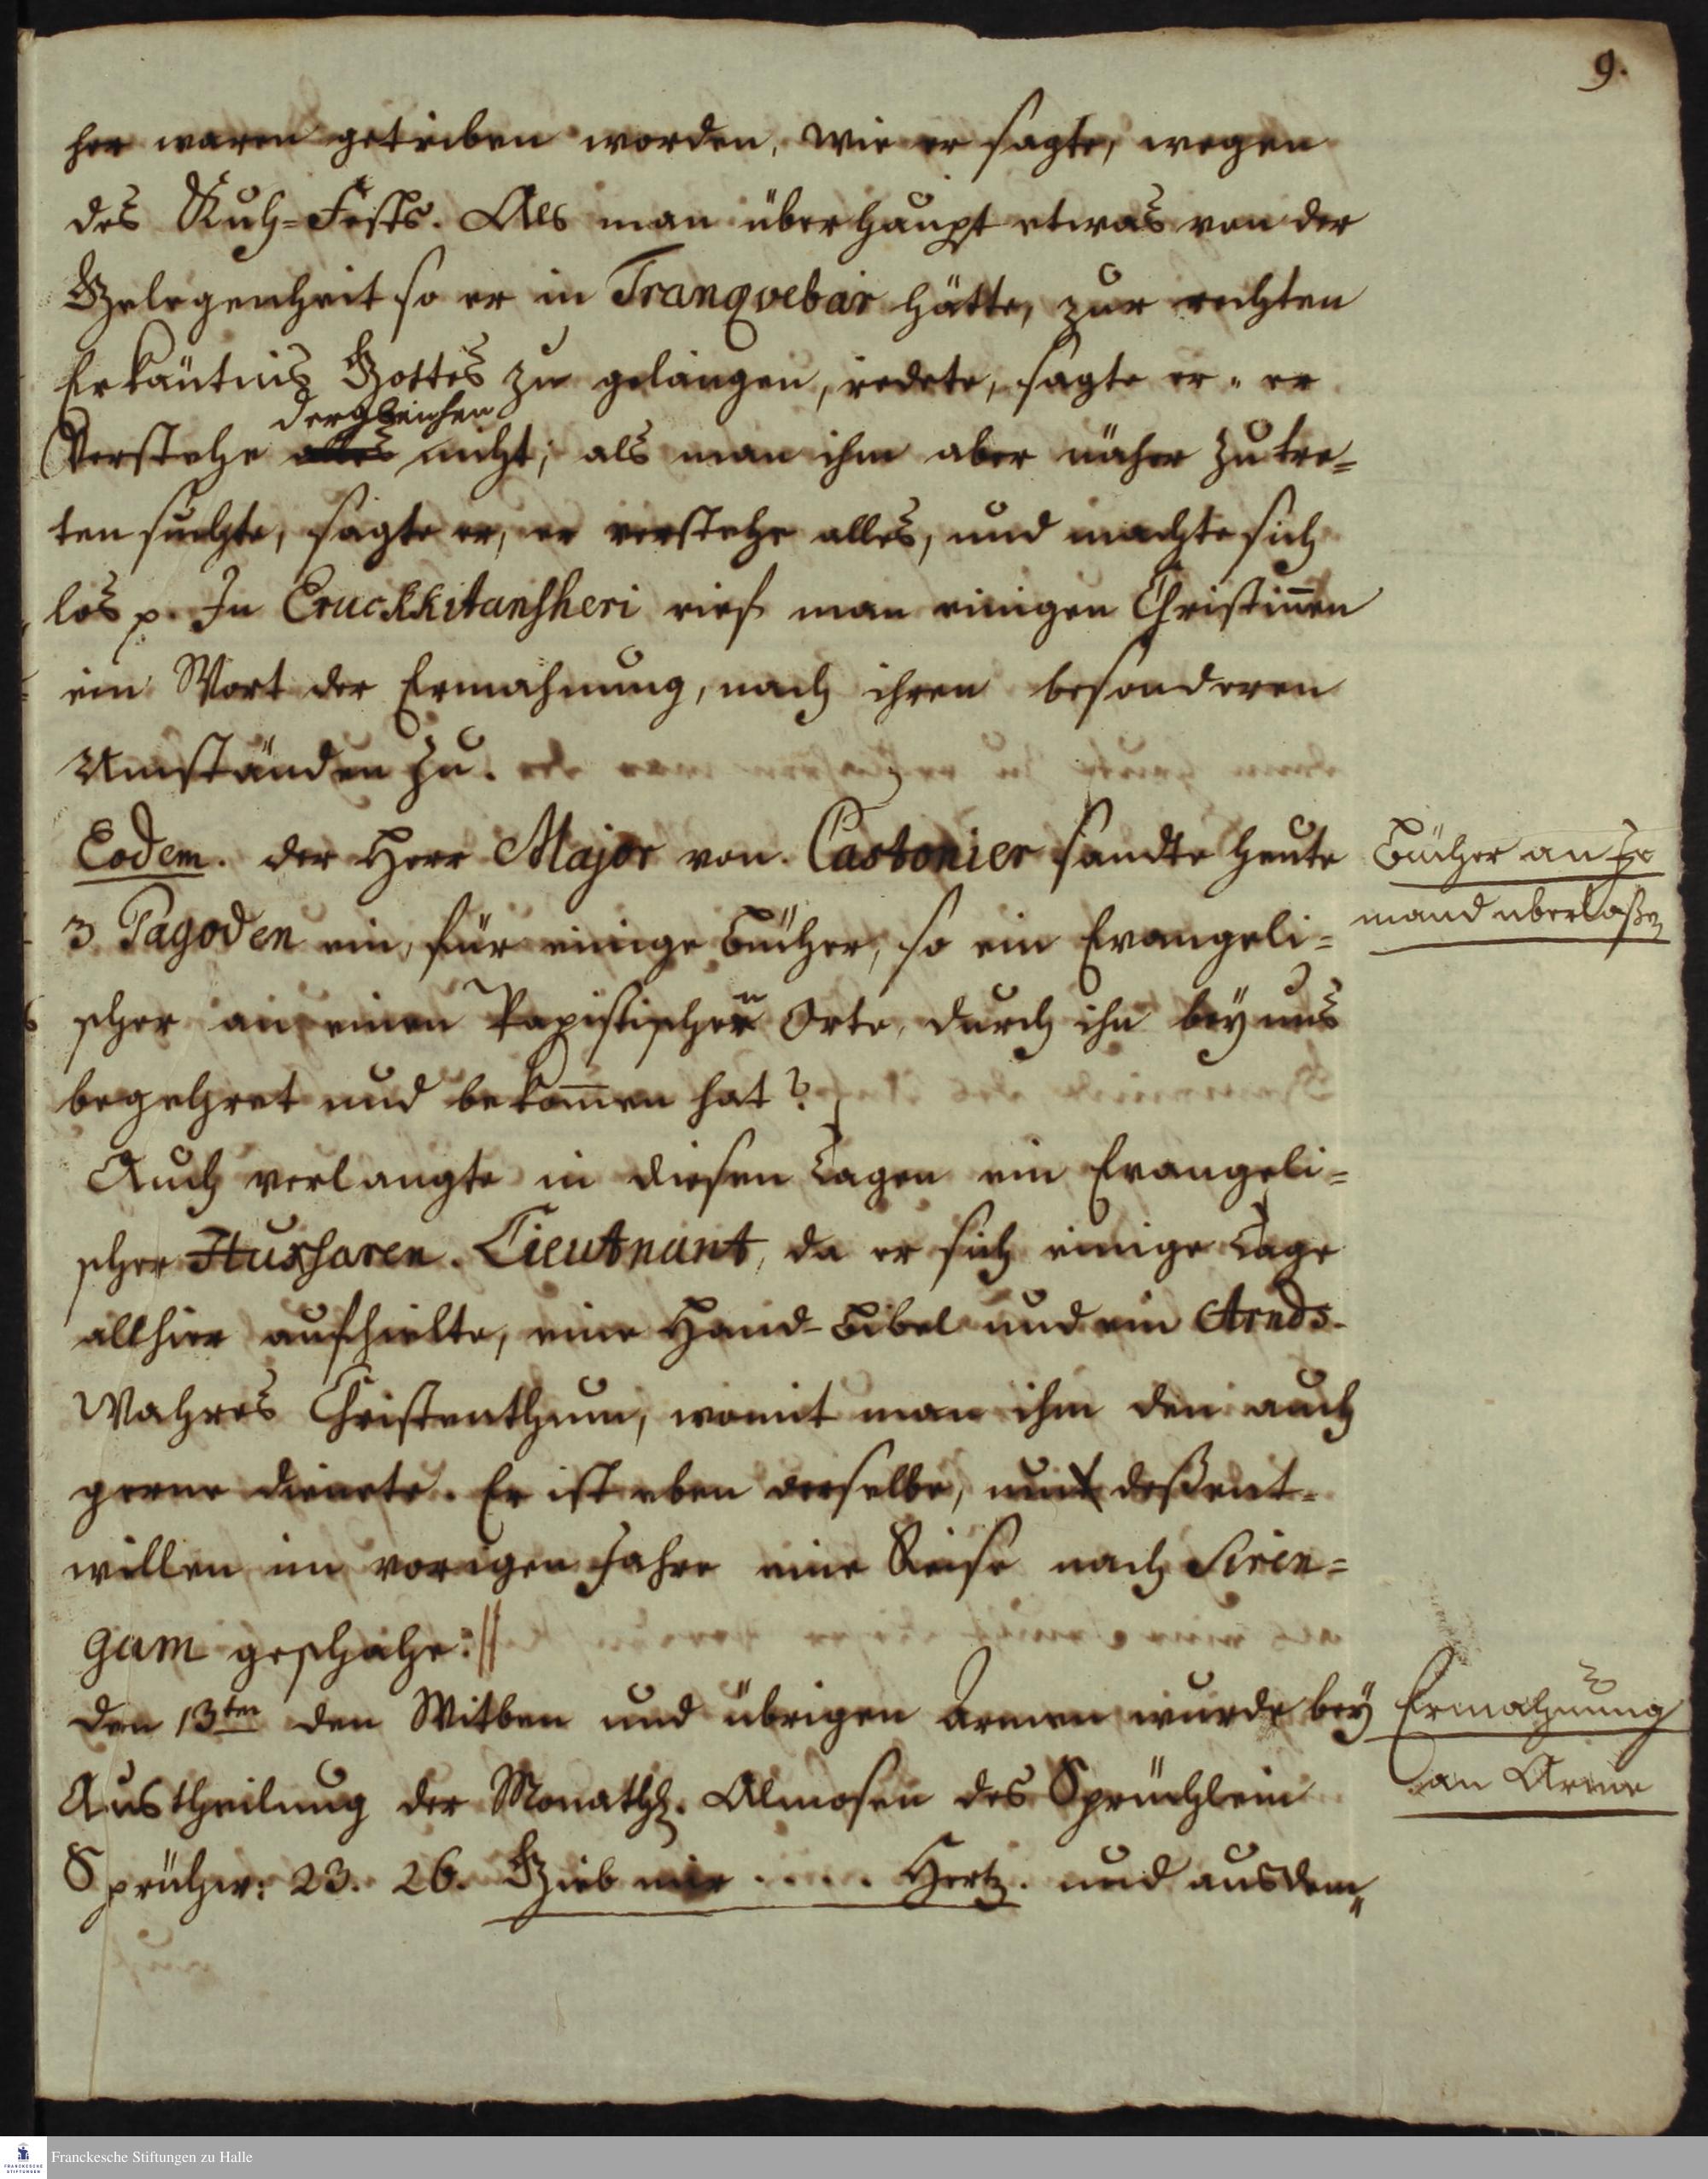 9.
her waren getrieben worden, wie er sagte, wegen
des Kuh=Fests. Als man überhaupt etwas von der
Gelegenheit so er in Tranqvebar hätte, zur rechten
Erkäntnis Gottes zu gelangen, redete, sagte er, er
dergleichen
Verstehe alles nicht; als man ihm aber näher zu tre=
ten suchte, sagte er, er verstehe alles, und machte sich
los p. In Eruckkitansheri rief man einigen Christinen
ein Wort der Ermahnung, nach ihren besonderen
Umständen zu.
Eodem. der Herr Major von Castonier sandte heute
3 Pagoden ein, für einige Bücher, so ein Evangeli=
scher an einen Papistischen Orte, durch ihn bey uns
begehret und bekomen hat.
Auch verlangte in diesen Tagen ein Evangeli=
scher Husaren. Lieutnant, da er sich einige Tage
allhier aufhielte, eine Hand-Bibel und ein Arnds-
Wahres Christenthum, womit man ihm den auch
gerne dienete. Er ist eben derselbe, um deßent-
willen im vorigen Jahre eine Reise nach Siren=
gam geschahe.
den 13ten den Witben und übrigen Armen wurde bey
Austheilung der Monathl. Almosen des Sprüchlein
Sprüchw: 23. 26. Gieb mir ..... Hertz. und aus dem
Bücher an Je
mand uberlaßen
Ermahnung
an Arme
Franckesche Stiftungen zu Halle